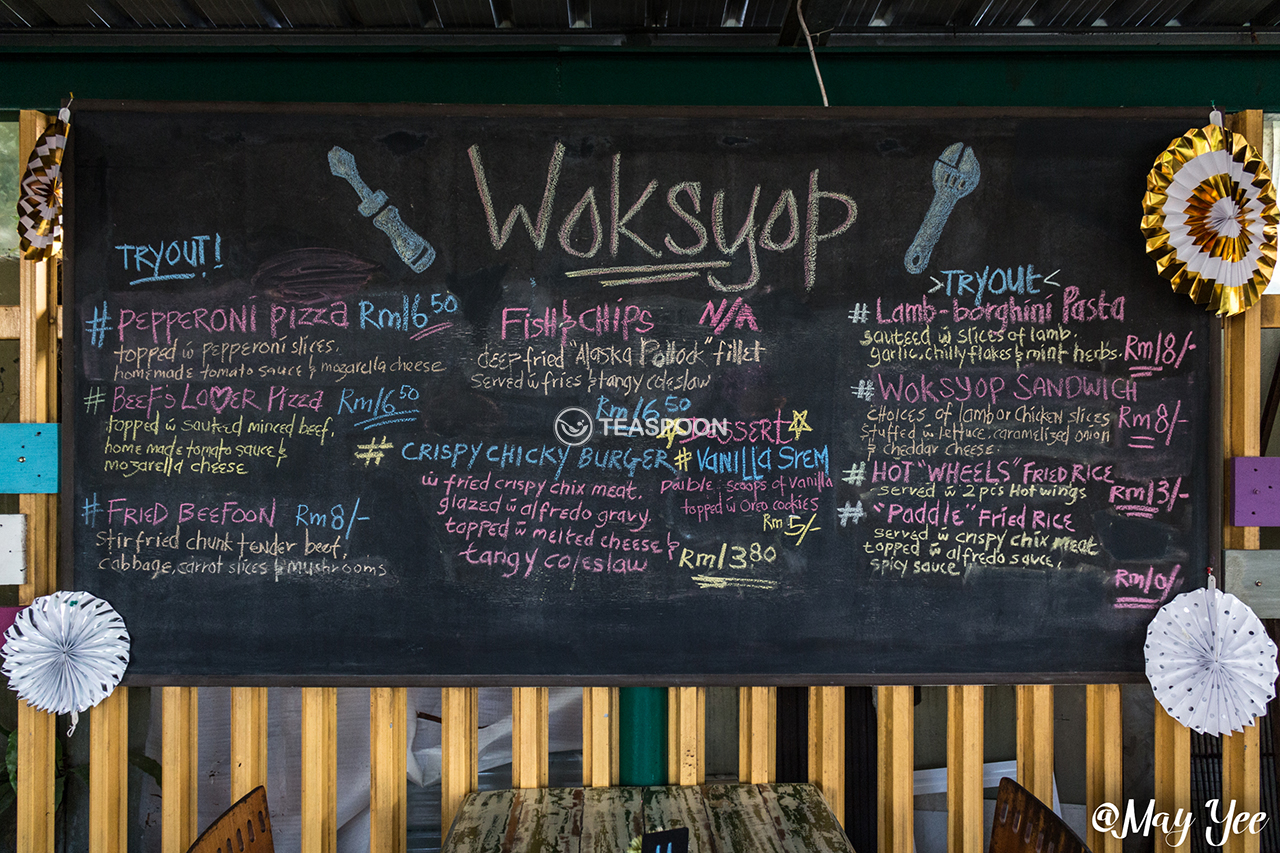 Woksyop
TRYOUT!
# PEPPERONI PIZZA Rm16.50
topped w̄ pepperoni slices,
homemade tomato sauce & mozarella cheese
# BEEFS LOVER PIZZA Rm16.50
topped w̄ sauteed minced beef,
home made tomato sauce &
mozarella cheese
# FRIED BEEFOON Rm8/-
stir fried chunk tender beef,
cabbage, carrot slices & mushrooms
FISH & CHIPS N/A
deep fried "Alaska Pollock" fillet
served w̄ fries & tangy coleslaw
Rm16.50
TEASPOON
# CRISPY CHICKY BURGER
w̄ fried crispy chix meat,
glazed w̄ alfredo gravy,
topped w̄ melted cheese &
tangy coleslaw
Rm13.80
Dessert
# Vanilla Srem
Double scoops of vanilla
topped w̄ Oreo cookies
Rm5/-
>TRYOUT<
# Lamb-borghini Pasta
sauteed w̄ slices of lamb,
garlic, chilly flakes & mint herbs. Rm18/-
# WOKSYOP SANDWICH
choices of lamb or chicken slices Rm8/-
stuffed w̄ lettuce, caramelized onion
& cheddar cheese.
# HOT "WHEELS" FRIED RICE
served w̄ 2 pcs Hot wings Rm13/-
# "PADDLE" FRIED RICE
served w̄ crispy chix meat
topped w̄ alfredo sauce,
spicy sauce
Rm10/-
@May Yee